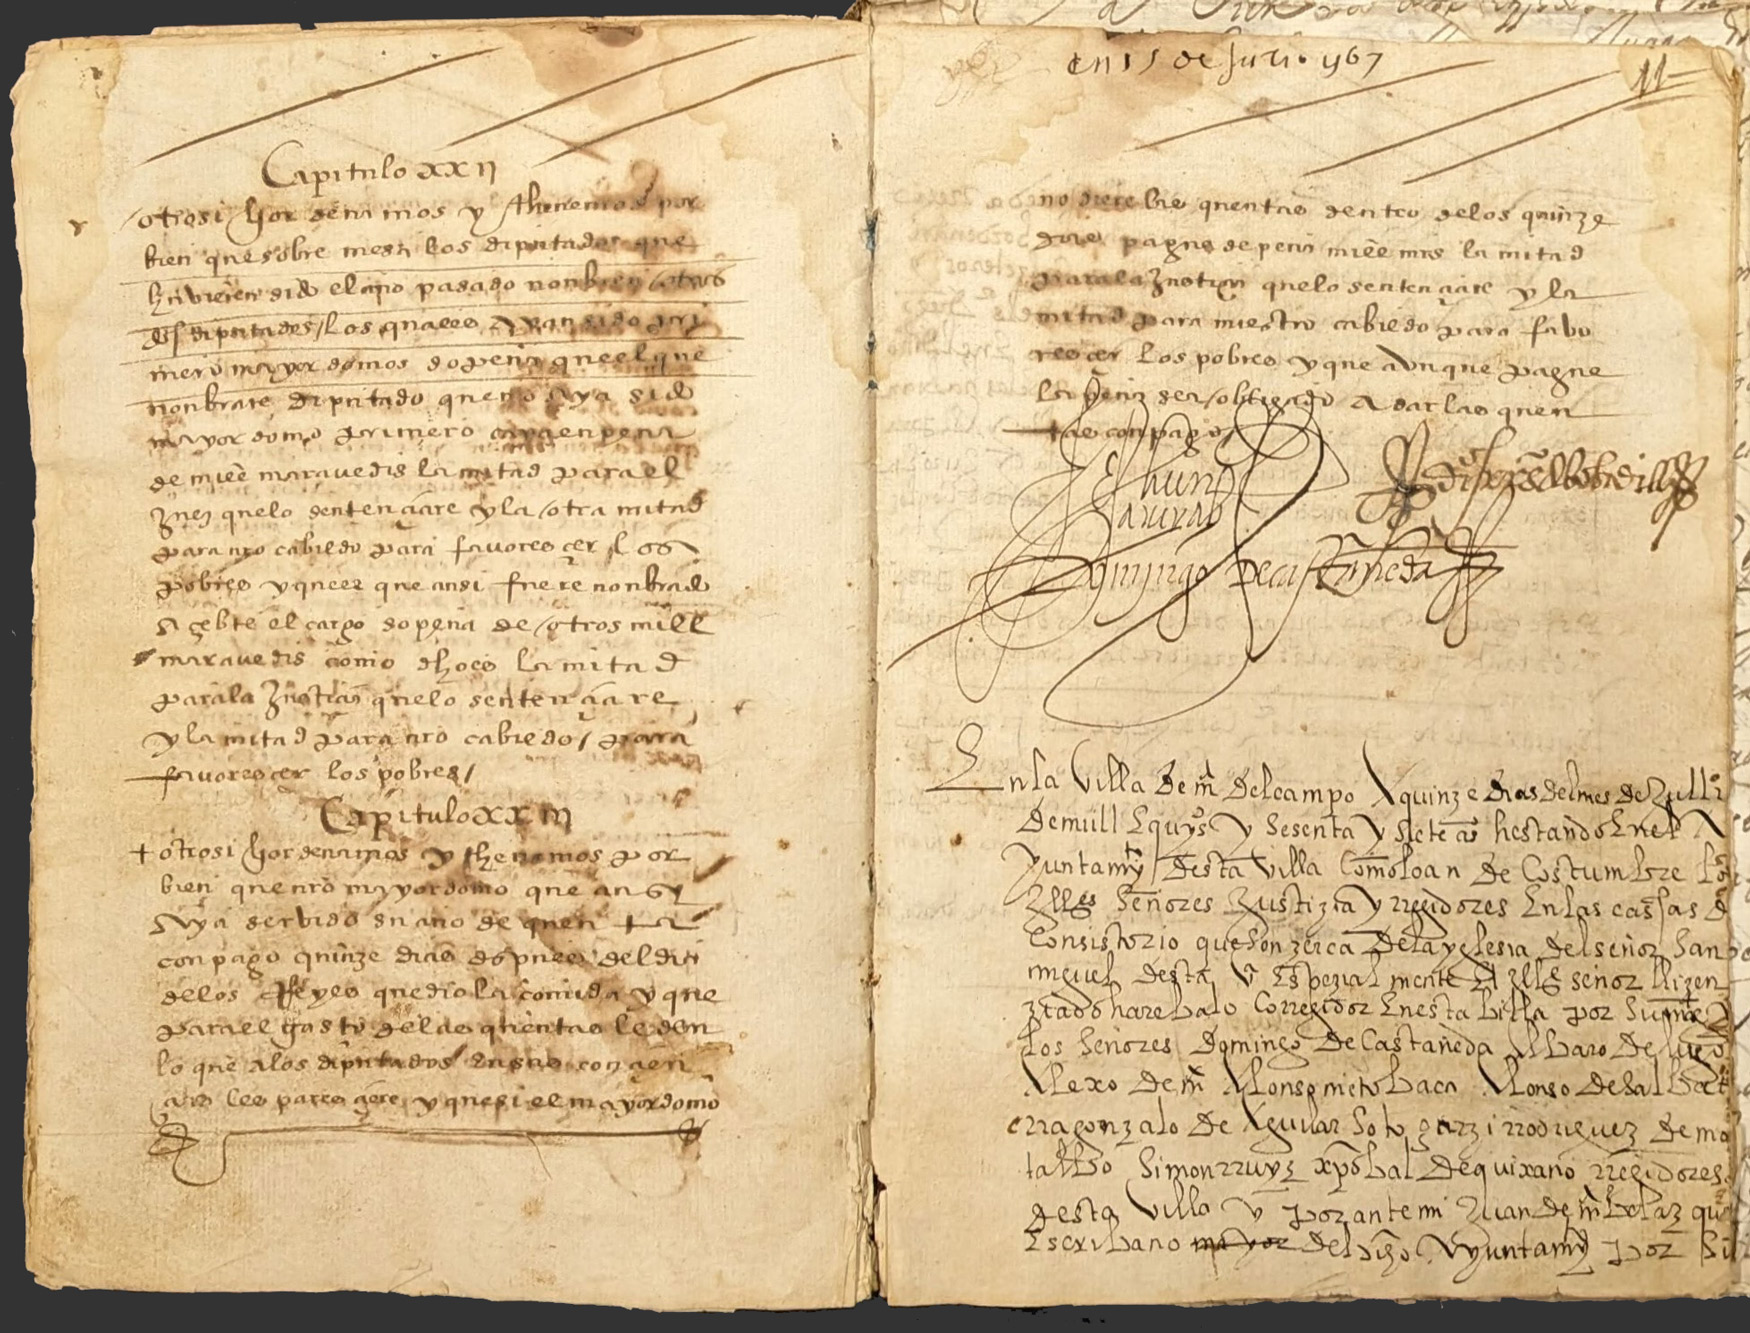 Capitulo xxii
otrosi hordenamos y thenemos por
bien que sobre mesa los diputados que
hubieren sido el año pasado nonbren otros
dos diputados / los quales ayan sido pri
mero mayordomos so pena que el que
nonbrare diputado que no aya sido
mayordomo primero caya en pena
de mill maravedis la mitad para el
Juez que lo sentençiare y la otra mitad
para nro cabildo para favoresçer los
pobres y quel que ansi fuere nonbrado
açebte el cargo so pena de otros mill
maravedis como dhoes la mitad
para la Justiçia que lo sentençiare
y la mitad para nro cabildo / para
favoresçer los pobres /
Capitulo xxiii
+ otrosi hordenamos y thenemos por
bien que nro mayordomo que ansi
aya servido su año de quenta
con pago quinze dias despues del dia
de los Reyes que dio la comida y que
para el gasto de las quentas le den
lo que a los diputados en sus conçien
çias les paresçiere y que si el mayordomo
en 15 de Julio 1567
11
no diere las quentas dentro de los quinze
dias pague de pena mill mrs la mitad
para la Justiçia que lo sentençiare y la
mitad para nuestro cabildo para favo
resçer los pobres y que aunque pague
la pena sea obligado a dar las quen
tas con pago /
Domingo de castañeda
En la Villa de ma del campo A quinze dias del mes de Julli
de mill E quis y sesenta y siete as hestando En el A
Yuntamy desta villa Como lo an de Costumbre los
Ylles señores Justizia y rregidores En las cassas de
Consistorio que son zerca de la yglesia del señor san
miguel desta va Espezialmente El Ylle señor llizen
ziado harebalo Corregidor En esta billa por su mag y
los señores Domingo de Castañeda Albaro de lugo
Alexo de ma Alonso nieto baca Alonso de salbat
erra gonzalo de Aguilar soto garzi rrodriguez de mo
talbo simon rruyz xpobal de quixano rregidores
desta villa y por ante mi Juan de ma belaz que
Escribano mayor del dho Ayuntamy por su